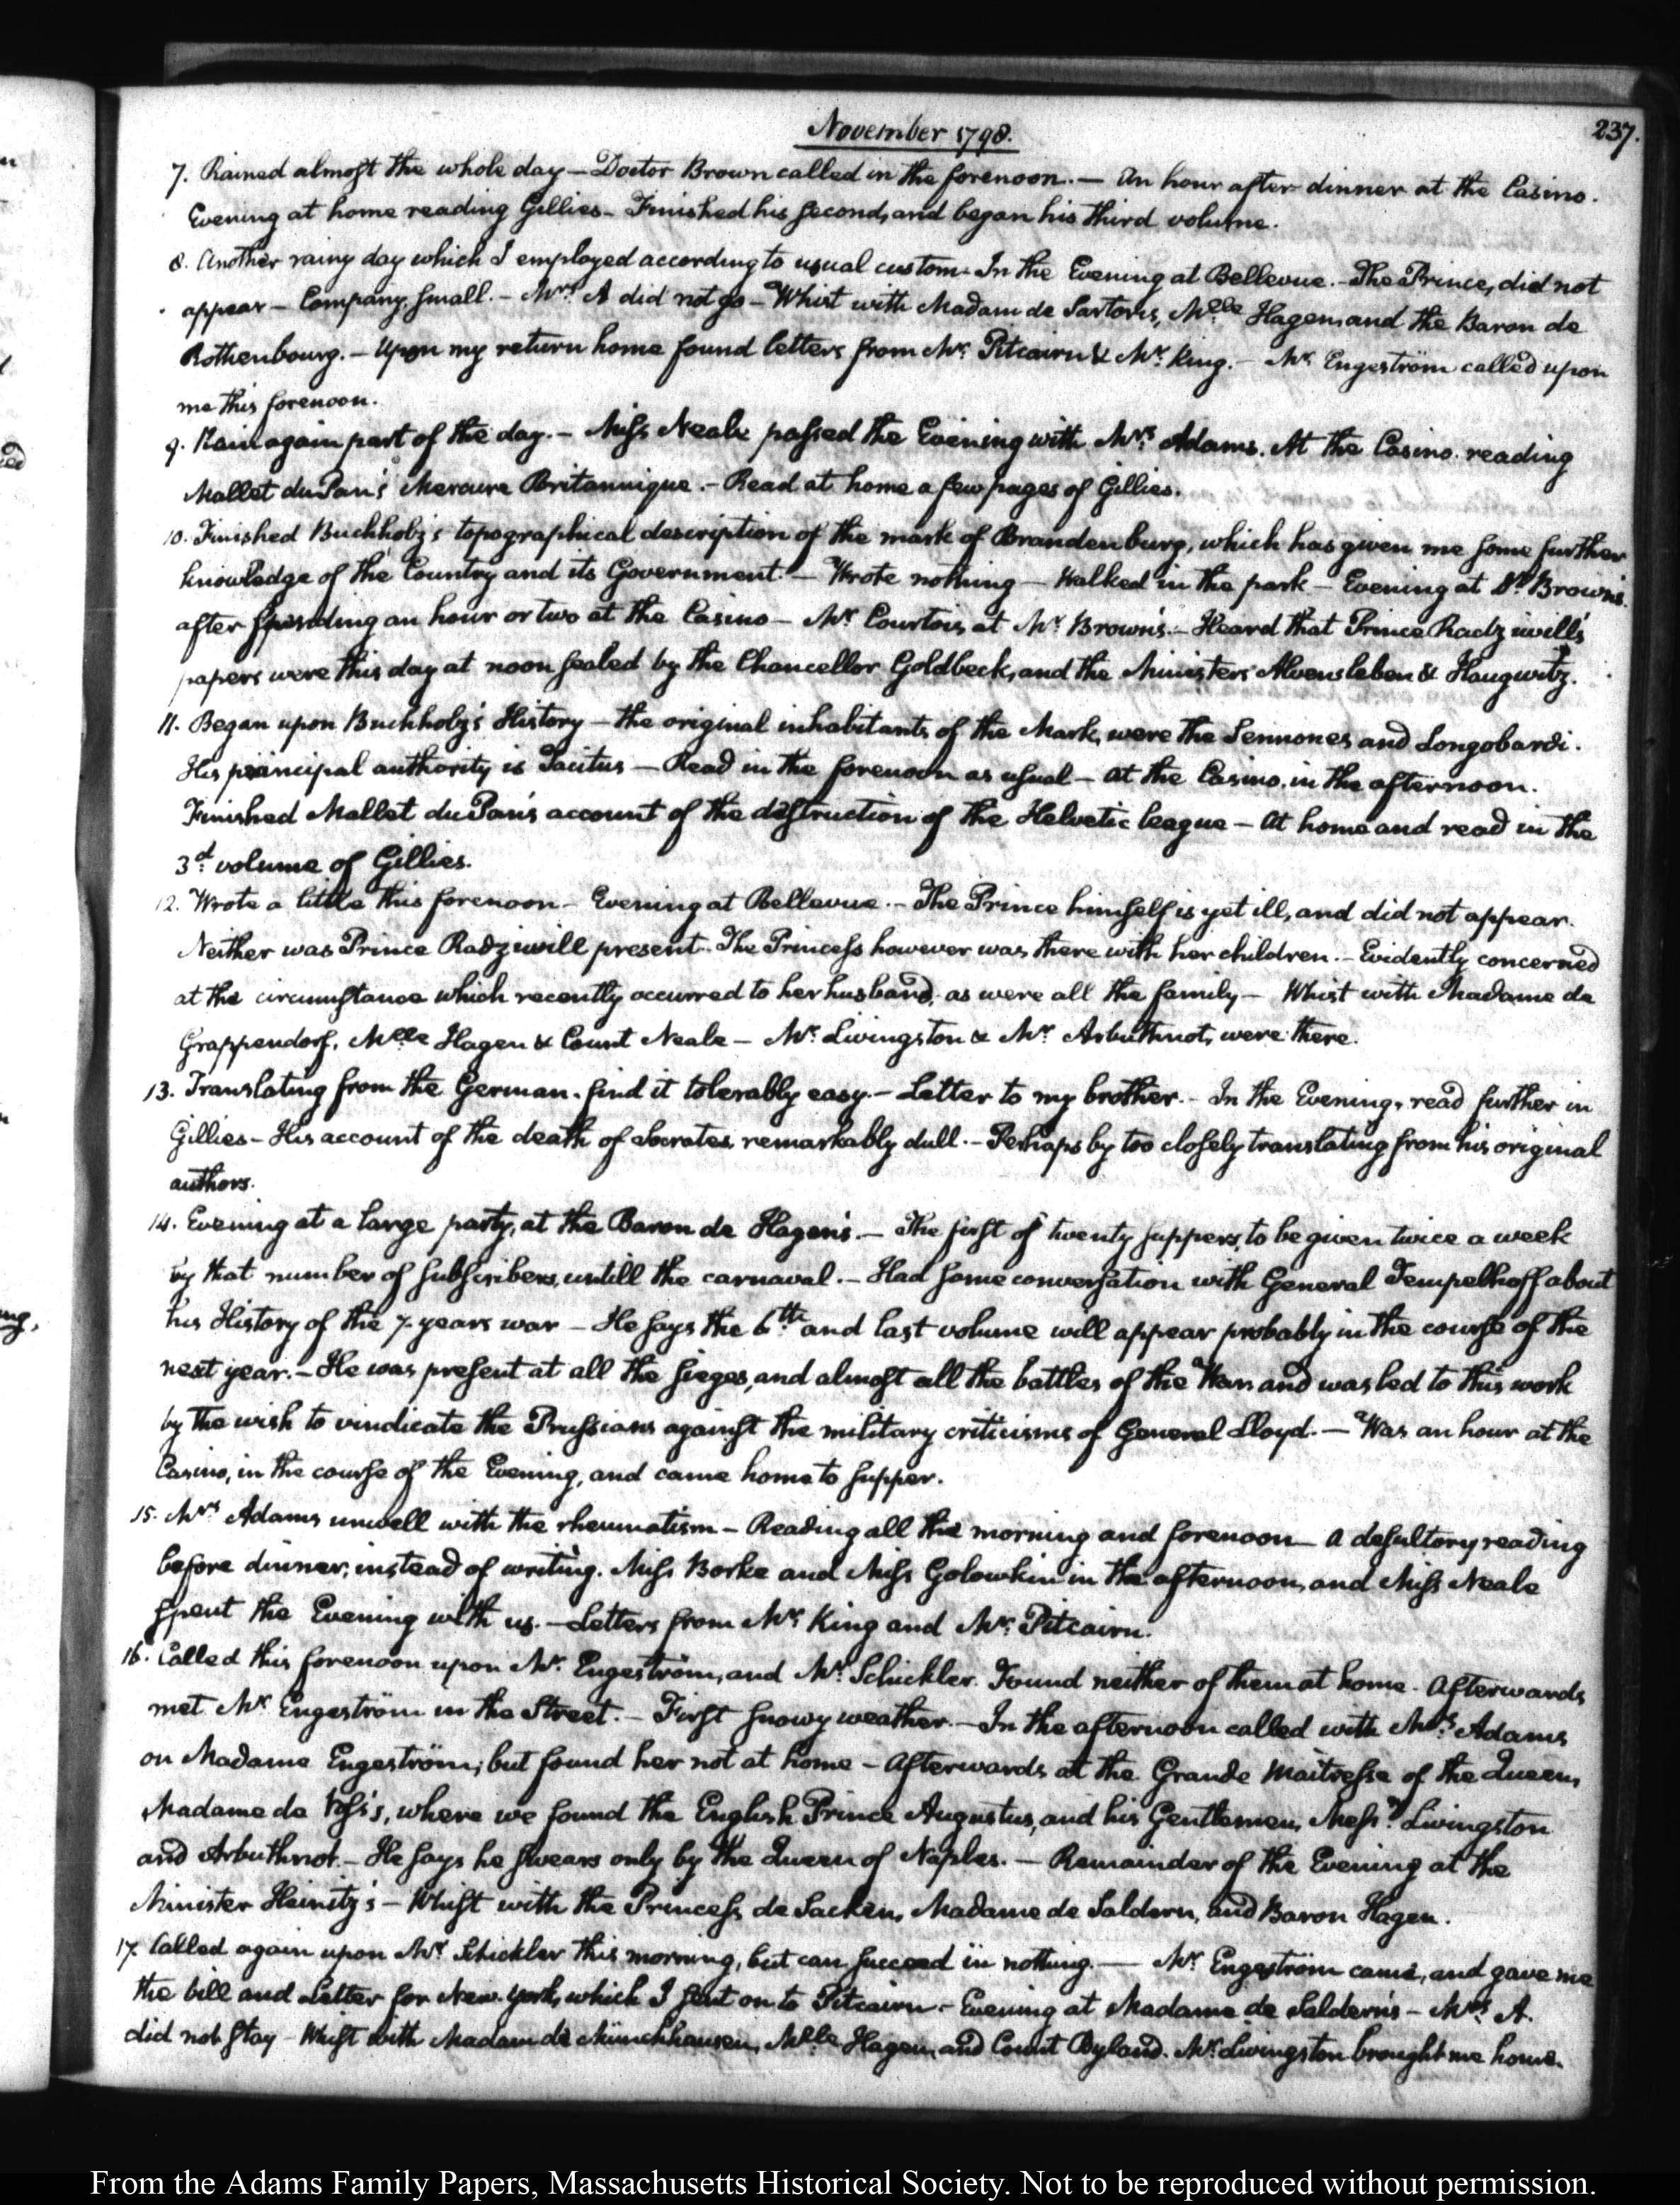 November 1798.
237.
7. Rained almost the whole day — Doctor Brown called in the forenoon. — An hour after dinner at the Casino.
Evening at home reading Gillies — Finished his second, and began his third volume.
8. Another rainy day which I employed according to usual custom. In the Evening at Bellevue. — The Prince, did not
appear — Company small. — Mrs. A did not go — Whist with Madam de Sartoris, Melle Hagen, and the Baron de
Rothenbourg. — Upon my return home found letters from Mr. Pitcairn & Mr. King. — Mr. Engeström called upon
me this forenoon.
9. Rain again part of the day. — Miss Neale passed the Evening with Mrs. Adams. At the Casino. reading
Mallet du Pan's Mercure Britannique. — Read at home a few pages of Gillies.
10. Finished Buchholz's topographical description of the mark of Brandenburg, which has given me some further
knowledge of the Country and its Government. — Wrote nothing — Walked in the park — Evening at Dr. Brown's
after spending an hour or two at the Casino — Mr. Courtois, at Mr. Brown's. — Heard that Prince Radziwill's
papers were this day at noon sealed by the Chancellor Goldbeck, and the Ministers Alvensleben & Haugwitz.
11. Began upon Buchholz's History — the original inhabitants of the Mark, were the Sennones and Longobardi.
His principal authority is Tacitus — Read in the forenoon as usual — At the Casino. in the afternoon.
Finished Mallet du Pan's account of the destruction of the Helvetic league — At home and read in the
3d. volume of Gillies.
12. Wrote a little this forenoon — Evening at Bellevue. — The Prince himself is yet ill, and did not appear.
Neither was Prince Radziwill present. The Princess however was there with her children. — Evidently concerned
at the circumstance which recently occurred to her husband, as were all the family — Whist with Madame de
Grappendorf, Melle Hagen & Count Neale — Mr. Livingston & Mr. Arbuthnot, were there.
13. Translating from the German. find it tolerably easy. — Letter to my brother. — In the Evening, read further in
Gillies — His account of the death of Socrates, remarkably dull. — Perhaps by too closely translating from his original
authors.
14. Evening at a large party, at the Baron de Hagen's. — The first of twenty suppers, to be given twice a week
by that number of subscribers, untill the carnaval. — Had some conversation with General Tempelhoff about
his History of the 7. years war — He says the 6th. and last volume will appear probably in the course of the
next year. — He was present at all the sieges, and almost all the battles of the War, and was led to this work
by the wish to vindicate the Prussians against the military criticisms of General Lloyd. — Was an hour at the
Casino, in the course of the Evening, and came home to supper.
15. Mrs. Adams unwell with the rheumatism — Reading all the morning and forenoon — A desultory reading
before dinner, instead of writing. Miss Borke and Miss Golowkin in the afternoon, and Miss Neale
spent the Evening with us. — Letters from Mr. King and Mr. Pitcairn.
16. Called this forenoon upon Mr. Engeström, and Mr. Schickler. Found neither of them at home. Afterwards
met Mr. Engeström in the Street. — First snowy weather. — In the afternoon called with Mrs. Adams
on Madame Engeström; but found her not at home — Afterwards at the Grande Maitresse of the Queen,
Madame de Voss's, where we found the English Prince Augustus, and his Gentlemen, Messrs. Livingston
and Arbuthnot. — He says he swears only by the Queen of Naples. — Remainder of the Evening at the
Minister Heinitz's — Whist with the Princess de Sacken, Madame de Saldern, and Baron Hagen.
17. Called again upon Mr. Schickler this morning, but can succeed in nothing. — Mr. Engeström came, and gave me
the bill and Letter for New-York, which I sent on to Pitcairn — Evening at Madame de Saldern's — Mrs. A.
did not stay — Whist with Madam de Münchhausen, Melle Hagen, and Count Byland. Mr. Livingston brought me home.
From the Adams Family Papers, Massachusetts Historical Society. Not to be reproduced without permission.